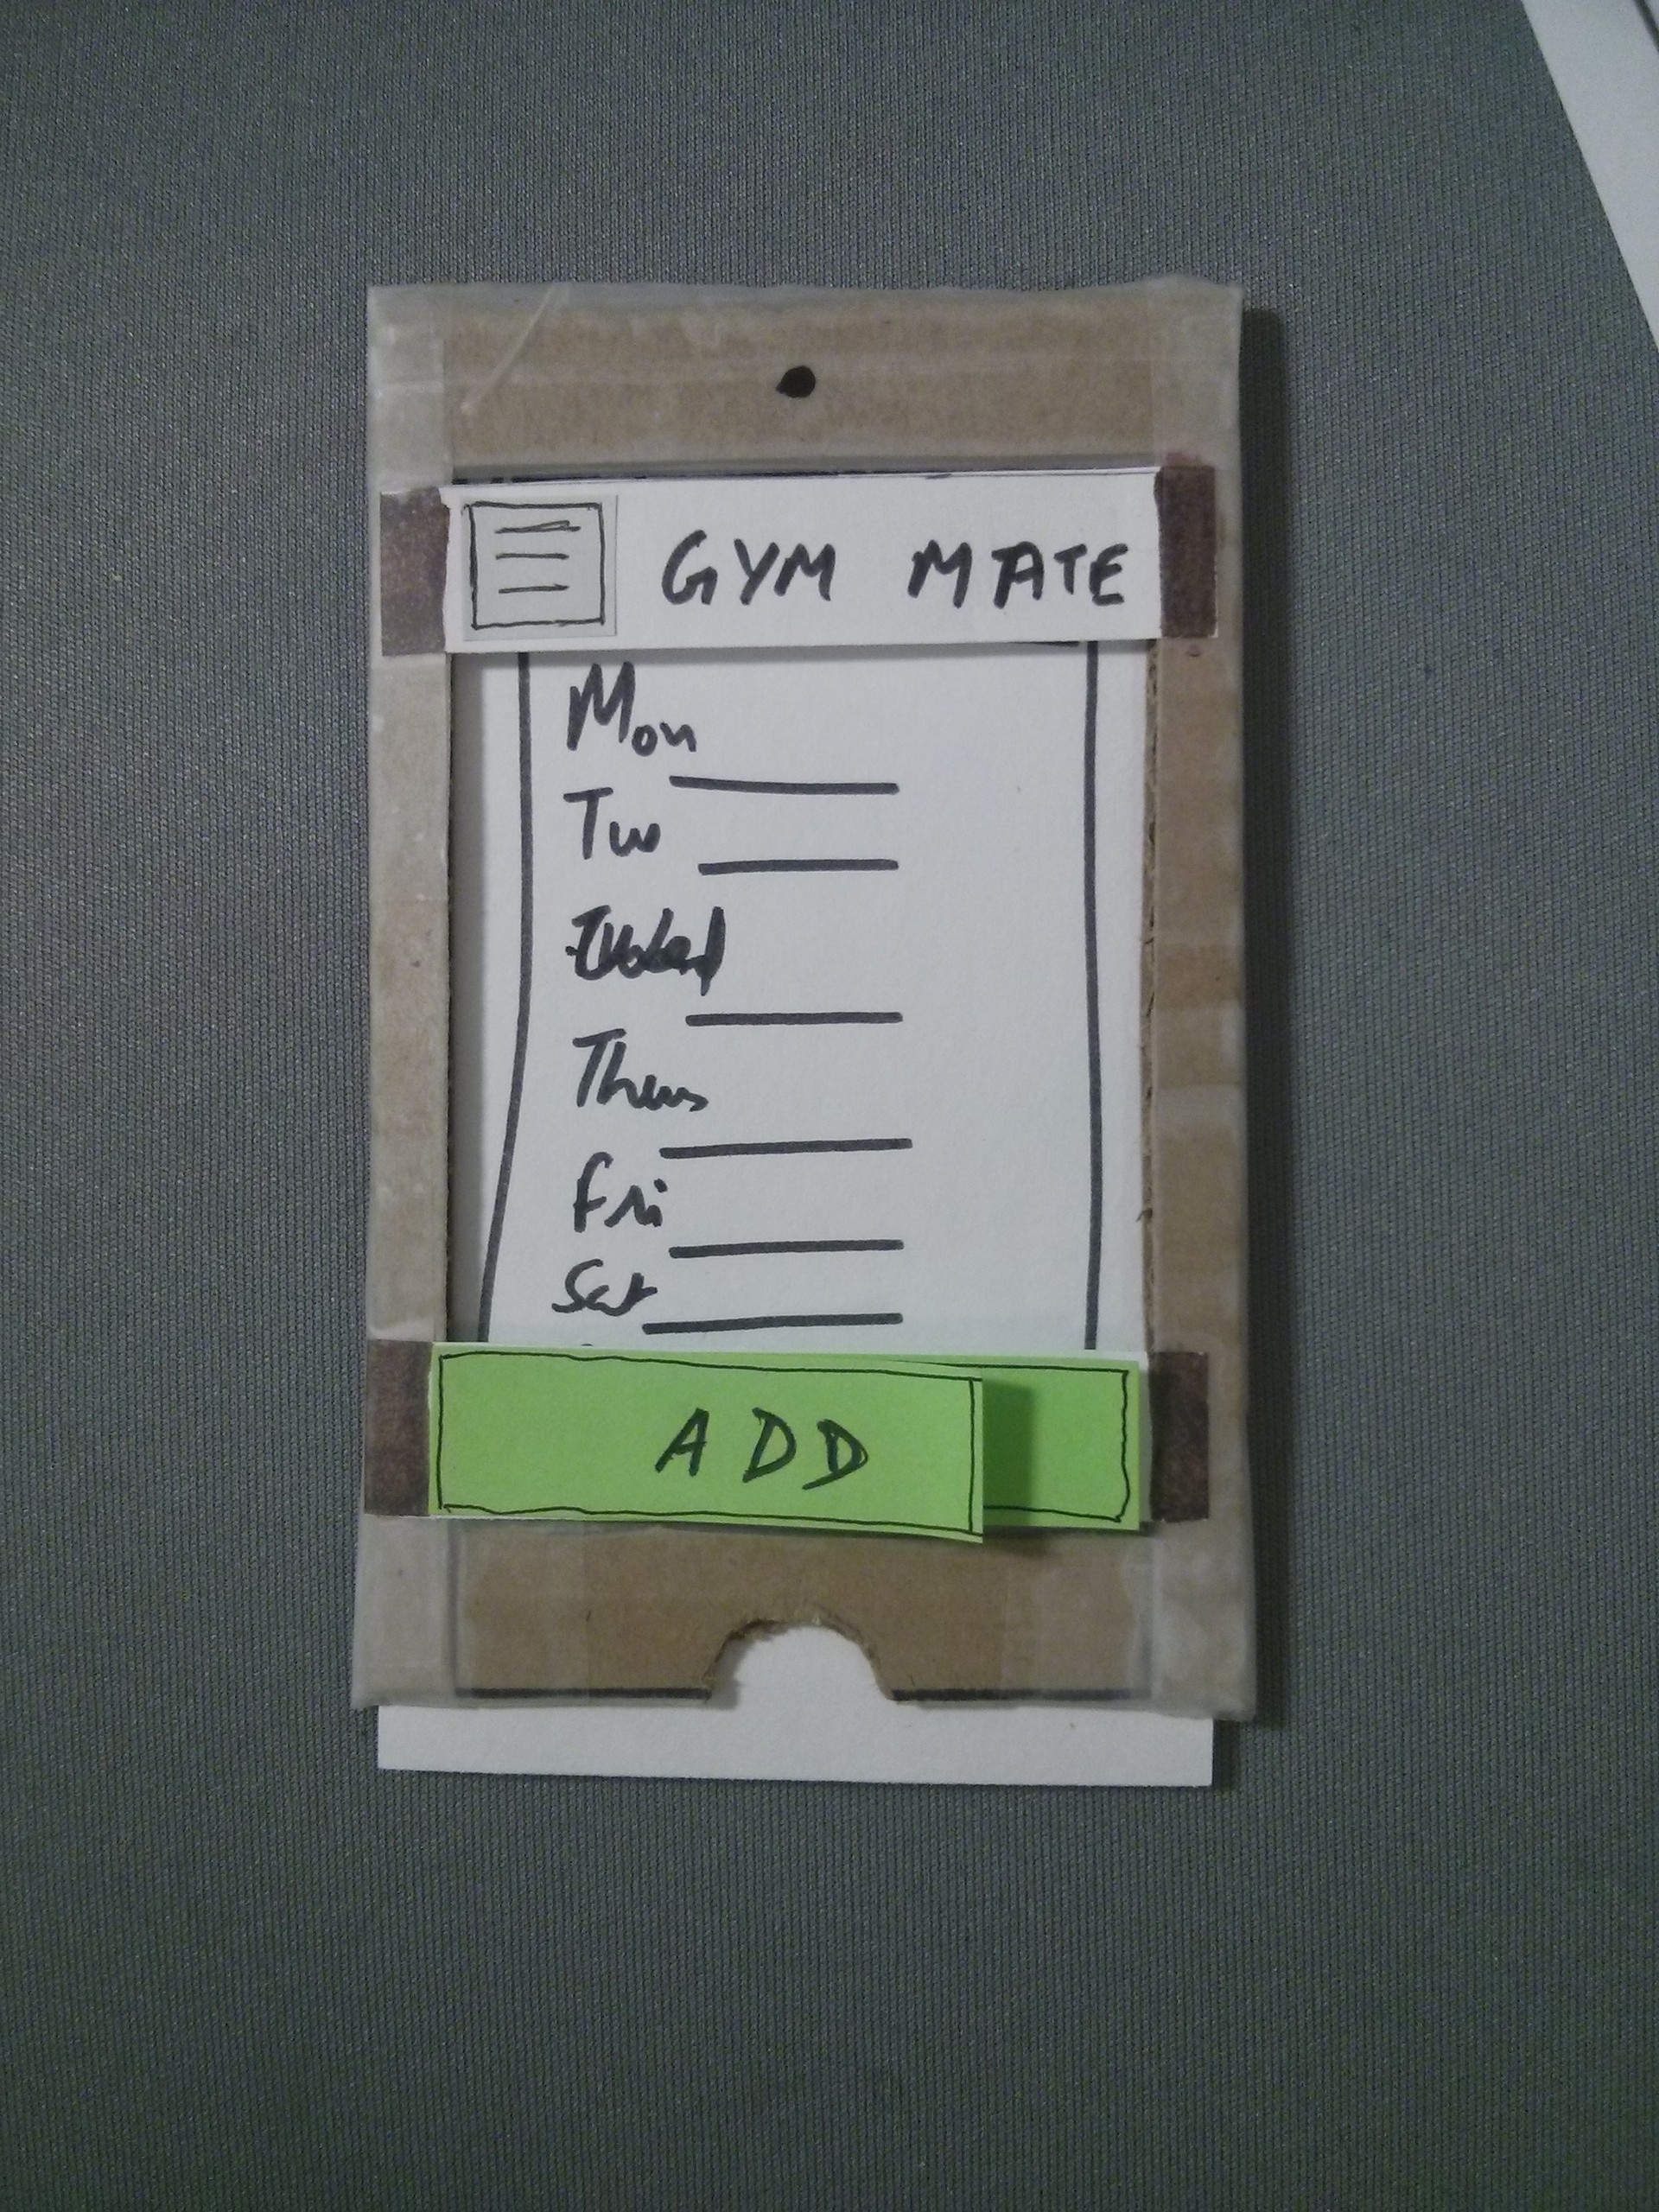 GYM MATE
Mon
Tu
Thurs
Fri
Sat
ADD